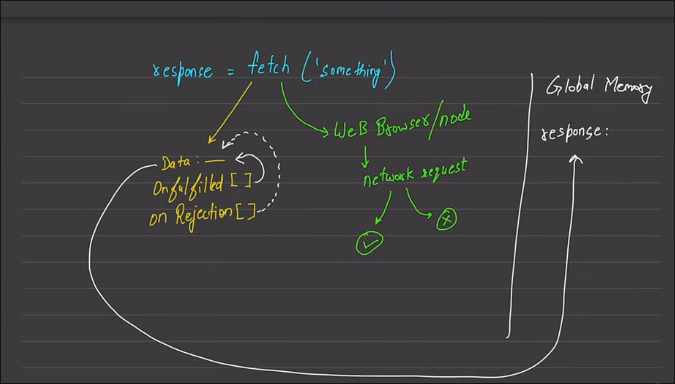 response = fetch ('something')
Global Memory
Web Browser/node
response:
Data: —
network request
Onfulfilled [ ]
on Rejection [ ]